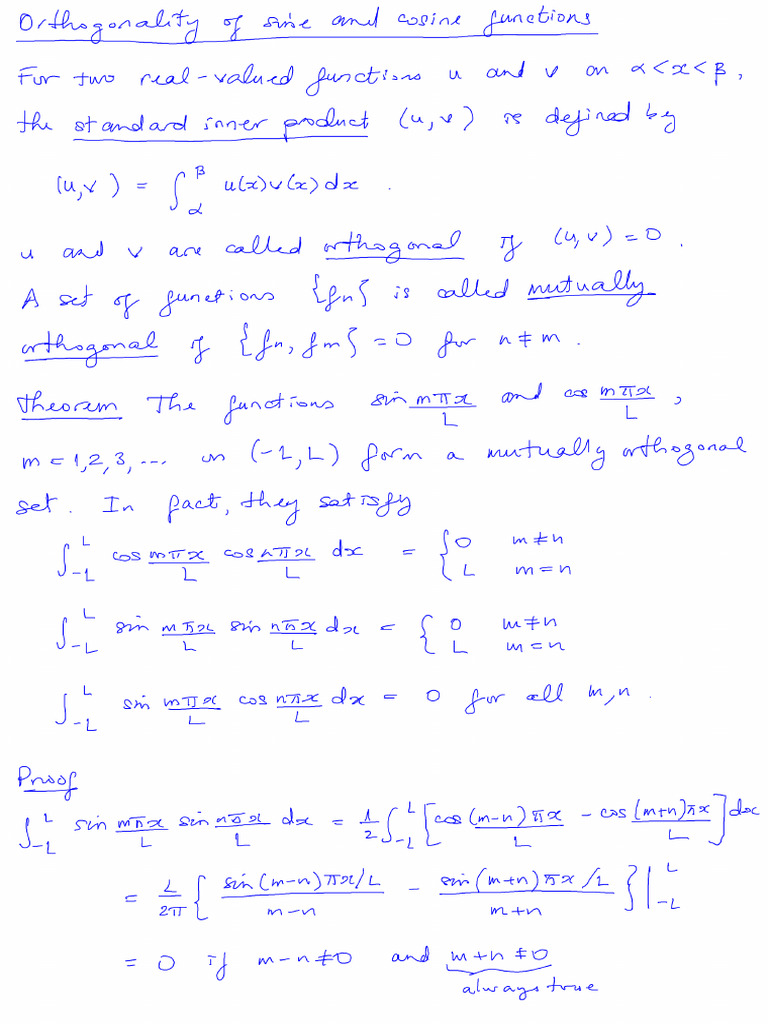 Orthogonality of sine and cosine functions
For two real-valued functions u and v on α<x<β,
the standard inner product (u,v) is defined by
(u,v) = ∫_α^β u(x)v(x)dx .
u and v are called orthogonal if (u,v)=0.
A set of functions {fn} is called mutually
orthogonal if {fn, fm} = 0 for n≠m.
Theorem The functions sin mπx/L and cos mπx/L,
m=1,2,3,... on (-L,L) form a mutually orthogonal
set. In fact, they satisfy
∫_{-L}^{L} cos mπx/L cos nπx/L dx = { 0 m≠n
L m=n
∫_{-L}^{L} sin mπx/L sin nπx/L dx = { 0 m≠n
L m=n
∫_{-L}^{L} sin mπx/L cos nπx/L dx = 0 for all m,n.
Proof
∫_{-L}^{L} sin mπx/L sin nπx/L dx = 1/2 ∫_{-L}^{L} [cos (m-n)πx/L - cos (m+n)πx/L] dx
= L/2π { sin(m-n)πx/L / m-n - sin(m+n)πx/L / m+n } |_{-L}^{L}
= 0 if m-n≠0 and m+n≠0
always true